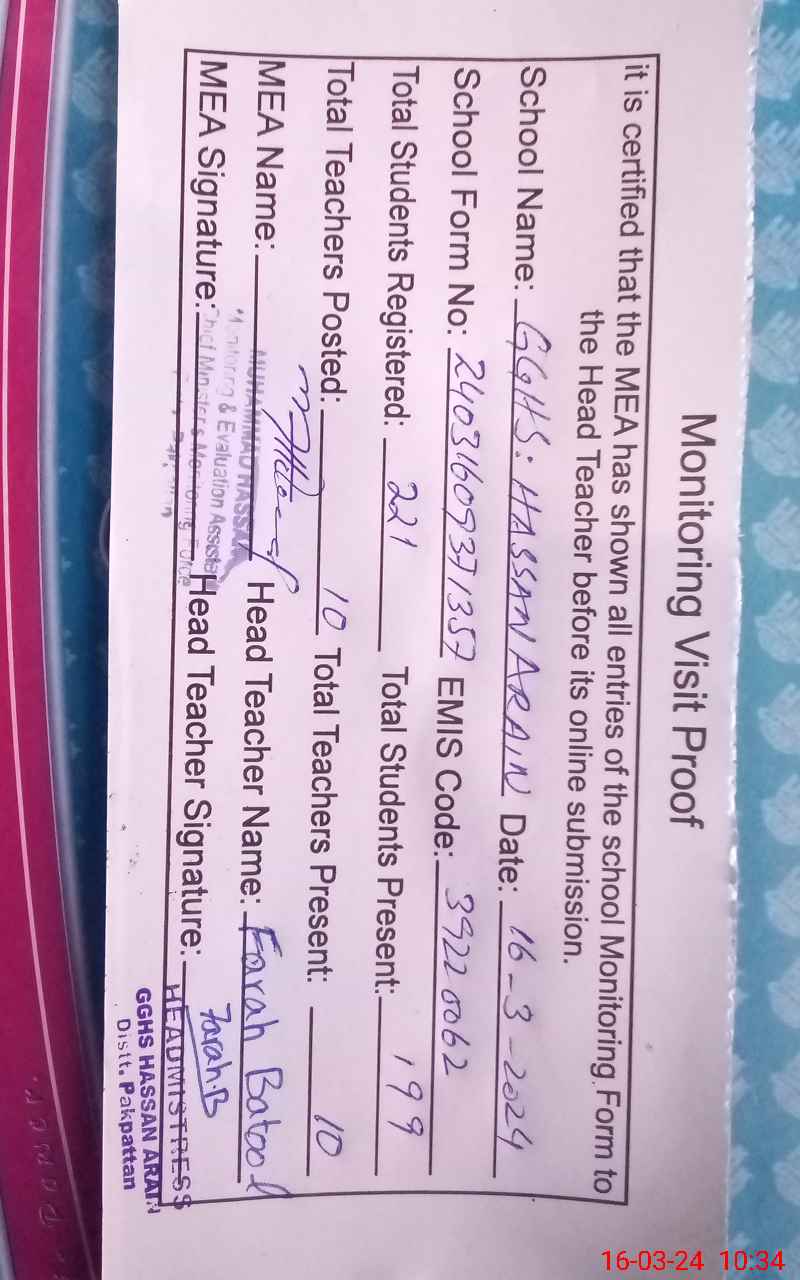 Monitoring Visit Proof
it is certified that the MEA has shown all entries of the school Monitoring Form to
the Head Teacher before its online submission.
School Name: GGHS: HASSAN ARAIN Date: 16-3-2024
School Form No: 24031609371357 EMIS Code: 39220062
Total Students Registered: 221 Total Students Present: 199
Total Teachers Posted: 10 Total Teachers Present: 10
MEA Name: MUHAMMAD HASSAN Head Teacher Name: Farah Batool
Monitoring & Evaluation Assistant
MEA Signature: Chief Minister's Monitoring Force Head Teacher Signature: Farah.B
Pakpattan
HEADMISTRESS
GGHS HASSAN ARAIN
Distt. Pakpattan
16-03-24 10:34